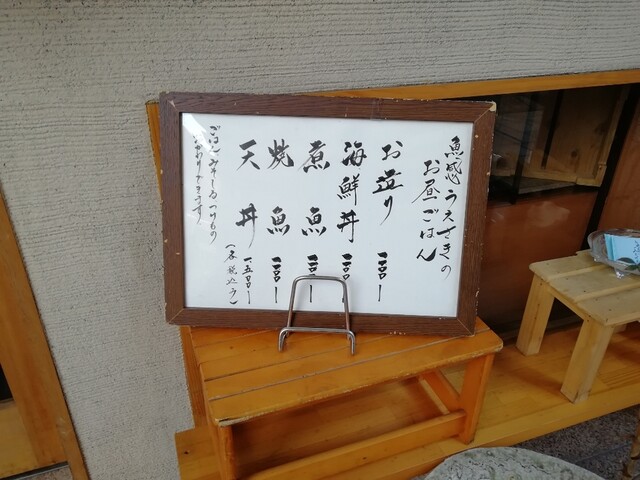 魚感うえさきの
お昼ごはん
お造り 一二〇〇ー
海鮮丼 一二〇〇ー
煮魚 一二〇〇ー
焼魚 一二〇〇ー
天丼 一五〇〇ー
ごはん みそしる つけもの
おかわりできます